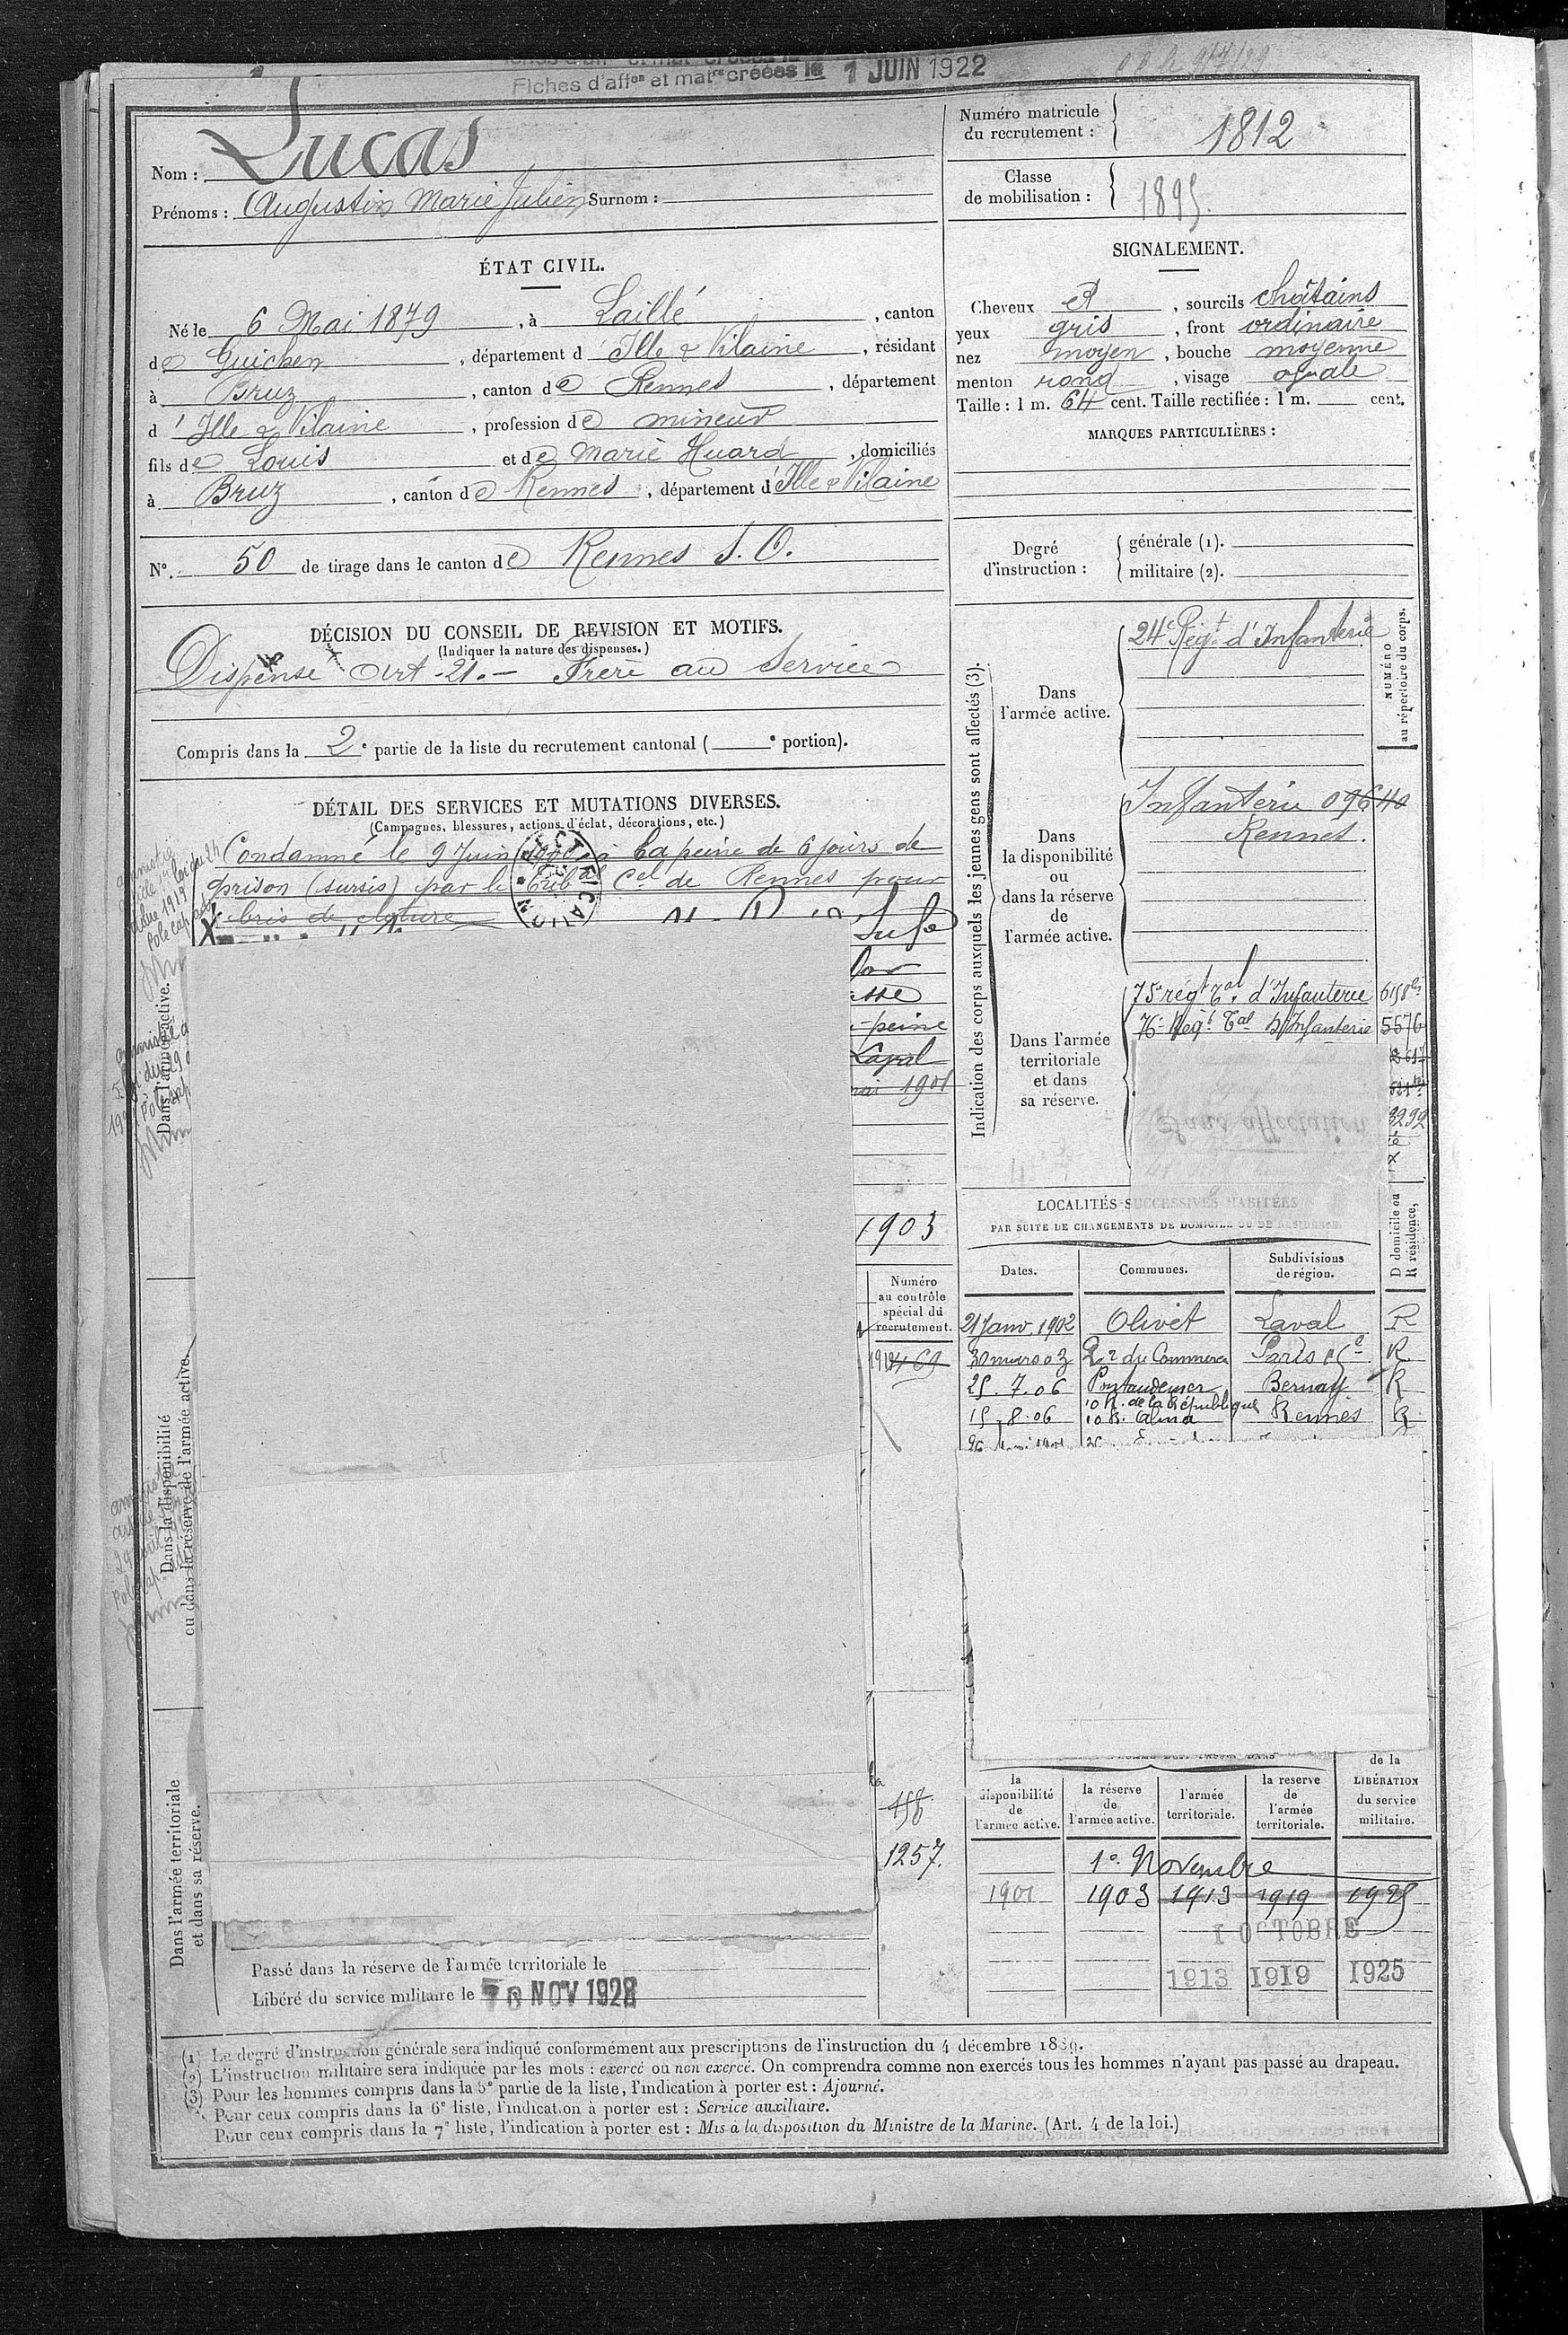 Fiches d'affon et matre créées le 1 JUIN 1922
Nom : Lucas
Prénoms : Augustin Marie Julien Surnom :
Numéro matricule du recrutement : 1812
Classe de mobilisation : 1895
ÉTAT CIVIL.
Né le 6 Mai 1879, à Laillé, canton
de Guichen, département d Ille & Vilaine, résidant
à Bruz, canton de Rennes, département
d'Ille & Vilaine, profession de mineur
fils de Louis et de Marie Huard, domiciliés
à Bruz, canton de Rennes, département d'Ille & Vilaine
N°. 50 de tirage dans le canton de Rennes S. O.
SIGNALEMENT.
Cheveux et, sourcils châtains
yeux gris, front ordinaire
nez moyen, bouche moyenne
menton rond, visage ovale
Taille : 1 m. 64 cent. Taille rectifiée : 1 m. cent.
MARQUES PARTICULIÈRES :
Degré d'instruction : générale (1).
militaire (2).
DÉCISION DU CONSEIL DE REVISION ET MOTIFS.
(Indiquer la nature des dispenses.)
Dispensé Art. 21. — Frère au Service
Compris dans la 2e partie de la liste du recrutement cantonal ( e portion).
DÉTAIL DES SERVICES ET MUTATIONS DIVERSES.
(Campagnes, blessures, actions d'éclat, décorations, etc.)
Condamné le 9 Juin 1900 à la peine de 6 jours de
prison (sursis) par le Tribal Cel de Rennes pour
bris de cloture
peine
Laval
mai 1901
1903
Dans l'armée active.
Dans la disponibilité
ou dans la réserve de l'armée active.
Dans l'armée territoriale
et dans sa réserve.
Numéro
au contrôle
spécial du
recrutement.
469
158
1257.
Passé dans la réserve de l'armée territoriale le
Libéré du service militaire le 10 NOV 1928
Indication des corps auxquels les jeunes gens sont affectés (3).
NUMÉRO
au répertoire du corps.
Dans
l'armée active.
24e Régt d'Infanterie
Dans
la disponibilité
ou
dans la réserve
de
l'armée active.
Infanterie 09640
Rennes.
Dans l'armée
territoriale
et dans
sa réserve.
75e régt Tal d'Infanterie
76e Régt Tal d'Infanterie 5576
3232
LOCALITÉS SUCCESSIVES HABITÉES
PAR SUITE DE CHANGEMENTS DE DOMICILE OU DE RÉSIDENCE.
Dates. Communes. Subdivisions de région. D domicile ou R résidence,
21 Janv. 1902 Olivet Laval R
30 mars 03 R. du Commerce Paris R
25. 7. 06 Pontaudemer Bernay R
10 R. de la République
15. 8. 06 10 R. Alma Rennes R
la disponibilité de l'armée active. la réserve de l'armée active. l'armée territoriale. la réserve de l'armée territoriale. de la LIBÉRATION du service militaire.
1er Novembre
1901 1903 1913 1919 1925
1 OCTOBRE
1913 1919 1925
(1) Le degré d'instruction générale sera indiqué conformément aux prescriptions de l'instruction du 4 décembre 1889.
(2) L'instruction militaire sera indiquée par les mots : exercé ou non exercé. On comprendra comme non exercés tous les hommes n'ayant pas passé au drapeau.
(3) Pour les hommes compris dans la 5e partie de la liste, l'indication à porter est : Ajourné.
Pour ceux compris dans la 6e liste, l'indication à porter est : Service auxiliaire.
Pour ceux compris dans la 7e liste, l'indication à porter est : Mis à la disposition du Ministre de la Marine. (Art. 4 de la loi.)